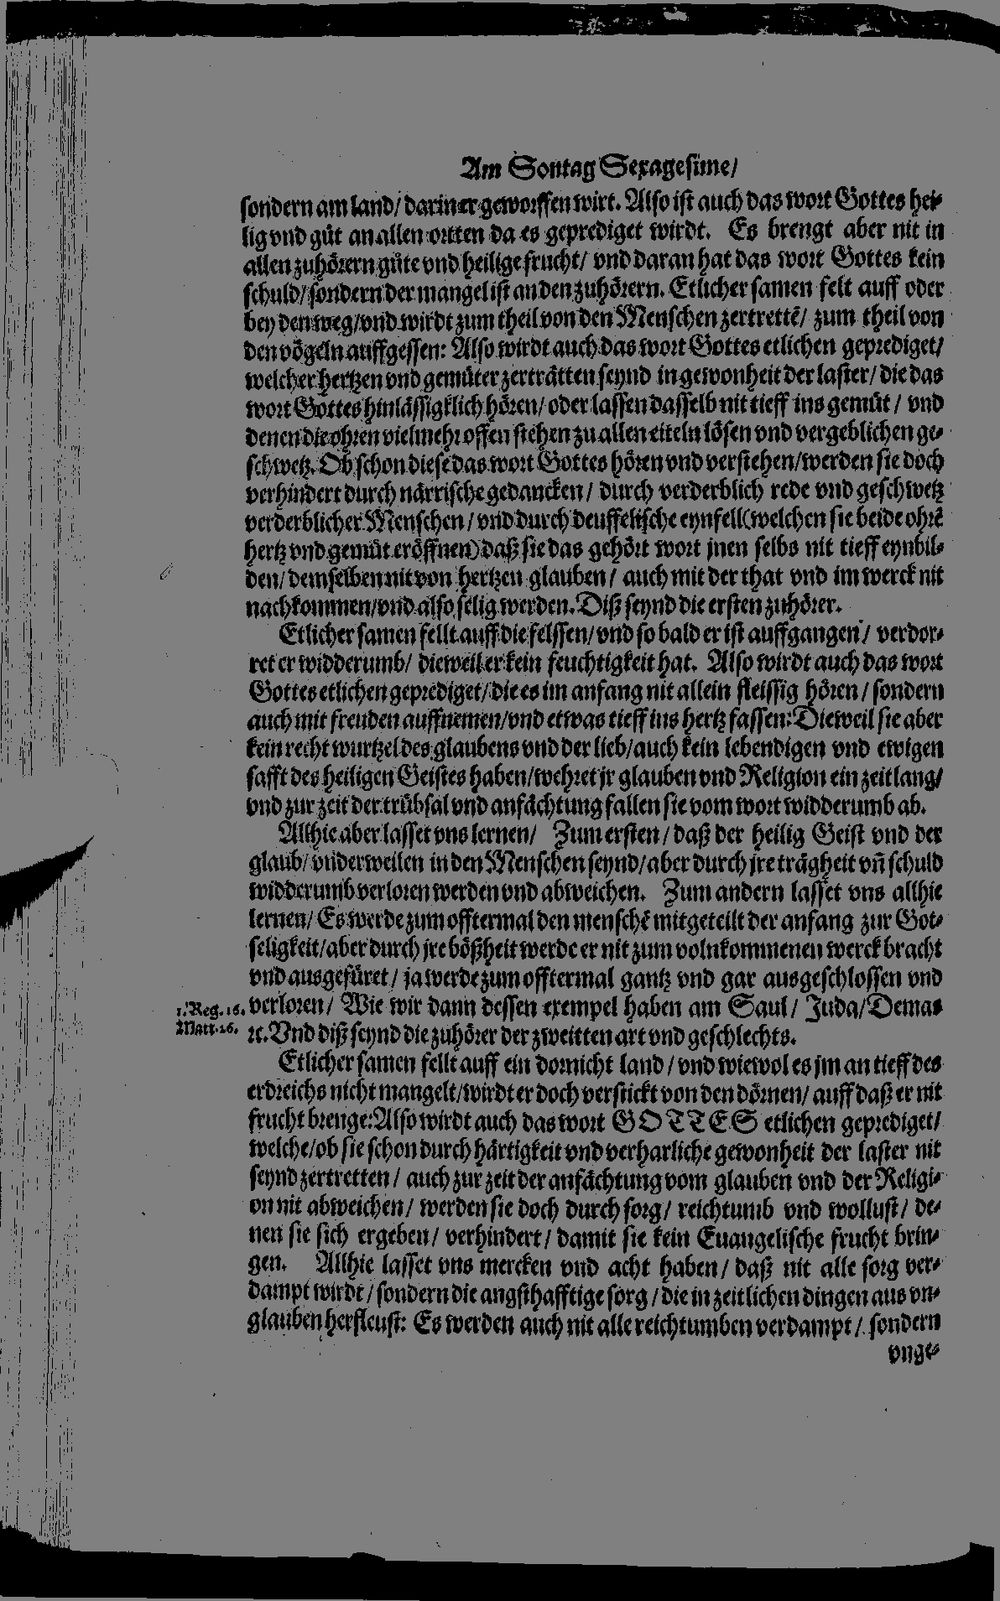 Am Sontag Sexagesime/
sondern am land/ darin er geworffen wirt. Also ist auch das wort Gottes hei-
lig vnd gůt an allen ortten da es geprediget wirdt. Es brengt aber nit in
allen zuhörern gůte vnd heilige frucht/ vnd daran hat das wort Gottes kein
schuld/ sondern der mangel ist an den zuhörern. Etlicher samen felt auff oder
bey den weg/ vnd wirdt zum theil von den Menschen zertrettē/ zum theil von
den vögeln auffgessen: Also wirdt auch das wort Gottes etlichen geprediget/
welcher hertzen vnd gemüter zerträtten seynd in gewonheit der laster/ die das
wort Gottes hinlässigklich hören/ oder lassen dasselb nit tieff ins gemüt/ vnd
denen die ohren vielmehr offen stehen zu allen eiteln lösen vnd vergeblichen ge-
schwetz. Ob schon diese das wort Gottes hören vnd verstehen/ werden sie doch
verhindert durch närrische gedancken/ durch verderblich rede vnd geschwetz
verderblicher Menschen/ vnd durch deuffelische eynfell (welchen sie beide ohrē
hertz vnd gemüt eröffnen) daß sie das gehört wort jnen selbs nit tieff eynbil-
den/ demselben nit von hertzen glauben/ auch mit der that vnd im werck nit
nachkommen/ vnd also selig werden. Diß seynd die ersten zuhörer.
Etlicher samen fellt auff die felssen/ vnd so bald er ist auffgangen/ verdor-
ret er widderumb/ dieweil er kein feuchtigkeit hat. Also wirdt auch das wort
Gottes etlichen geprediget/ die es im anfang nit allein fleissig hören/ sondern
auch mit freuden auffnemen/ vnd etwas tieff ins hertz fassen: Dieweil sie aber
kein recht wurtzel des glaubens vnd der lieb/ auch kein lebendigen vnd ewigen
safft des heiligen Geistes haben/ wehret jr glauben vnd Religion ein zeit lang/
vnd zur zeit der trübsal vnd anfächtung fallen sie vom wort widderumb ab.
Allhie aber lasset vns lernen/ Zum ersten/ daß der heilig Geist vnd der
glaub/ vnderweilen in den Menschen seynd/ aber durch jre trägheit vñ schuld
widderumb verloren werden vnd abweichen. Zum andern lasset vns allhie
lernen/ Es werde zum offtermal den menschē mitgeteilt der anfang zur Got-
seligkeit/ aber durch jre bößheit werde er nit zum volnkommenen werck bracht
vnd ausgefüret/ ja werde zum offtermal gantz vnd gar ausgeschlossen vnd
1. Reg. 16. verloren/ Wie wir dann dessen exempel haben am Saul/ Juda/ Demas
Matt. 26. ꝛc. Vnd diß seynd die zuhörer der zweitten art vnd geschlechts.
Etlicher samen fellt auff ein dornicht land/ vnd wiewol es jm an tieff des
erdreichs nicht mangelt/ wirdt er doch verstickt von den dörnen/ auff daß er nit
frucht brenge: Also wirdt auch das wort GOTTES etlichen geprediget/
welche/ ob sie schon durch härtigkeit vnd verharliche gewonheit der laster nit
seynd zertretten/ auch zur zeit der anfächtung vom glauben vnd der Religi-
on nit abweichen/ werden sie doch durch sorg/ reichtumb vnd wollust/ de-
nen sie sich ergeben/ verhindert/ damit sie kein Euangelische frucht brin-
gen. Allhie lasset vns mercken vnd acht haben/ daß nit alle sorg ver-
dampt wirdt/ sondern die angsthafftige sorg/ die in zeitlichen dingen aus vn-
glauben herfleust: Es werden auch nit alle reichtumben verdampt/ sondern
vnge-